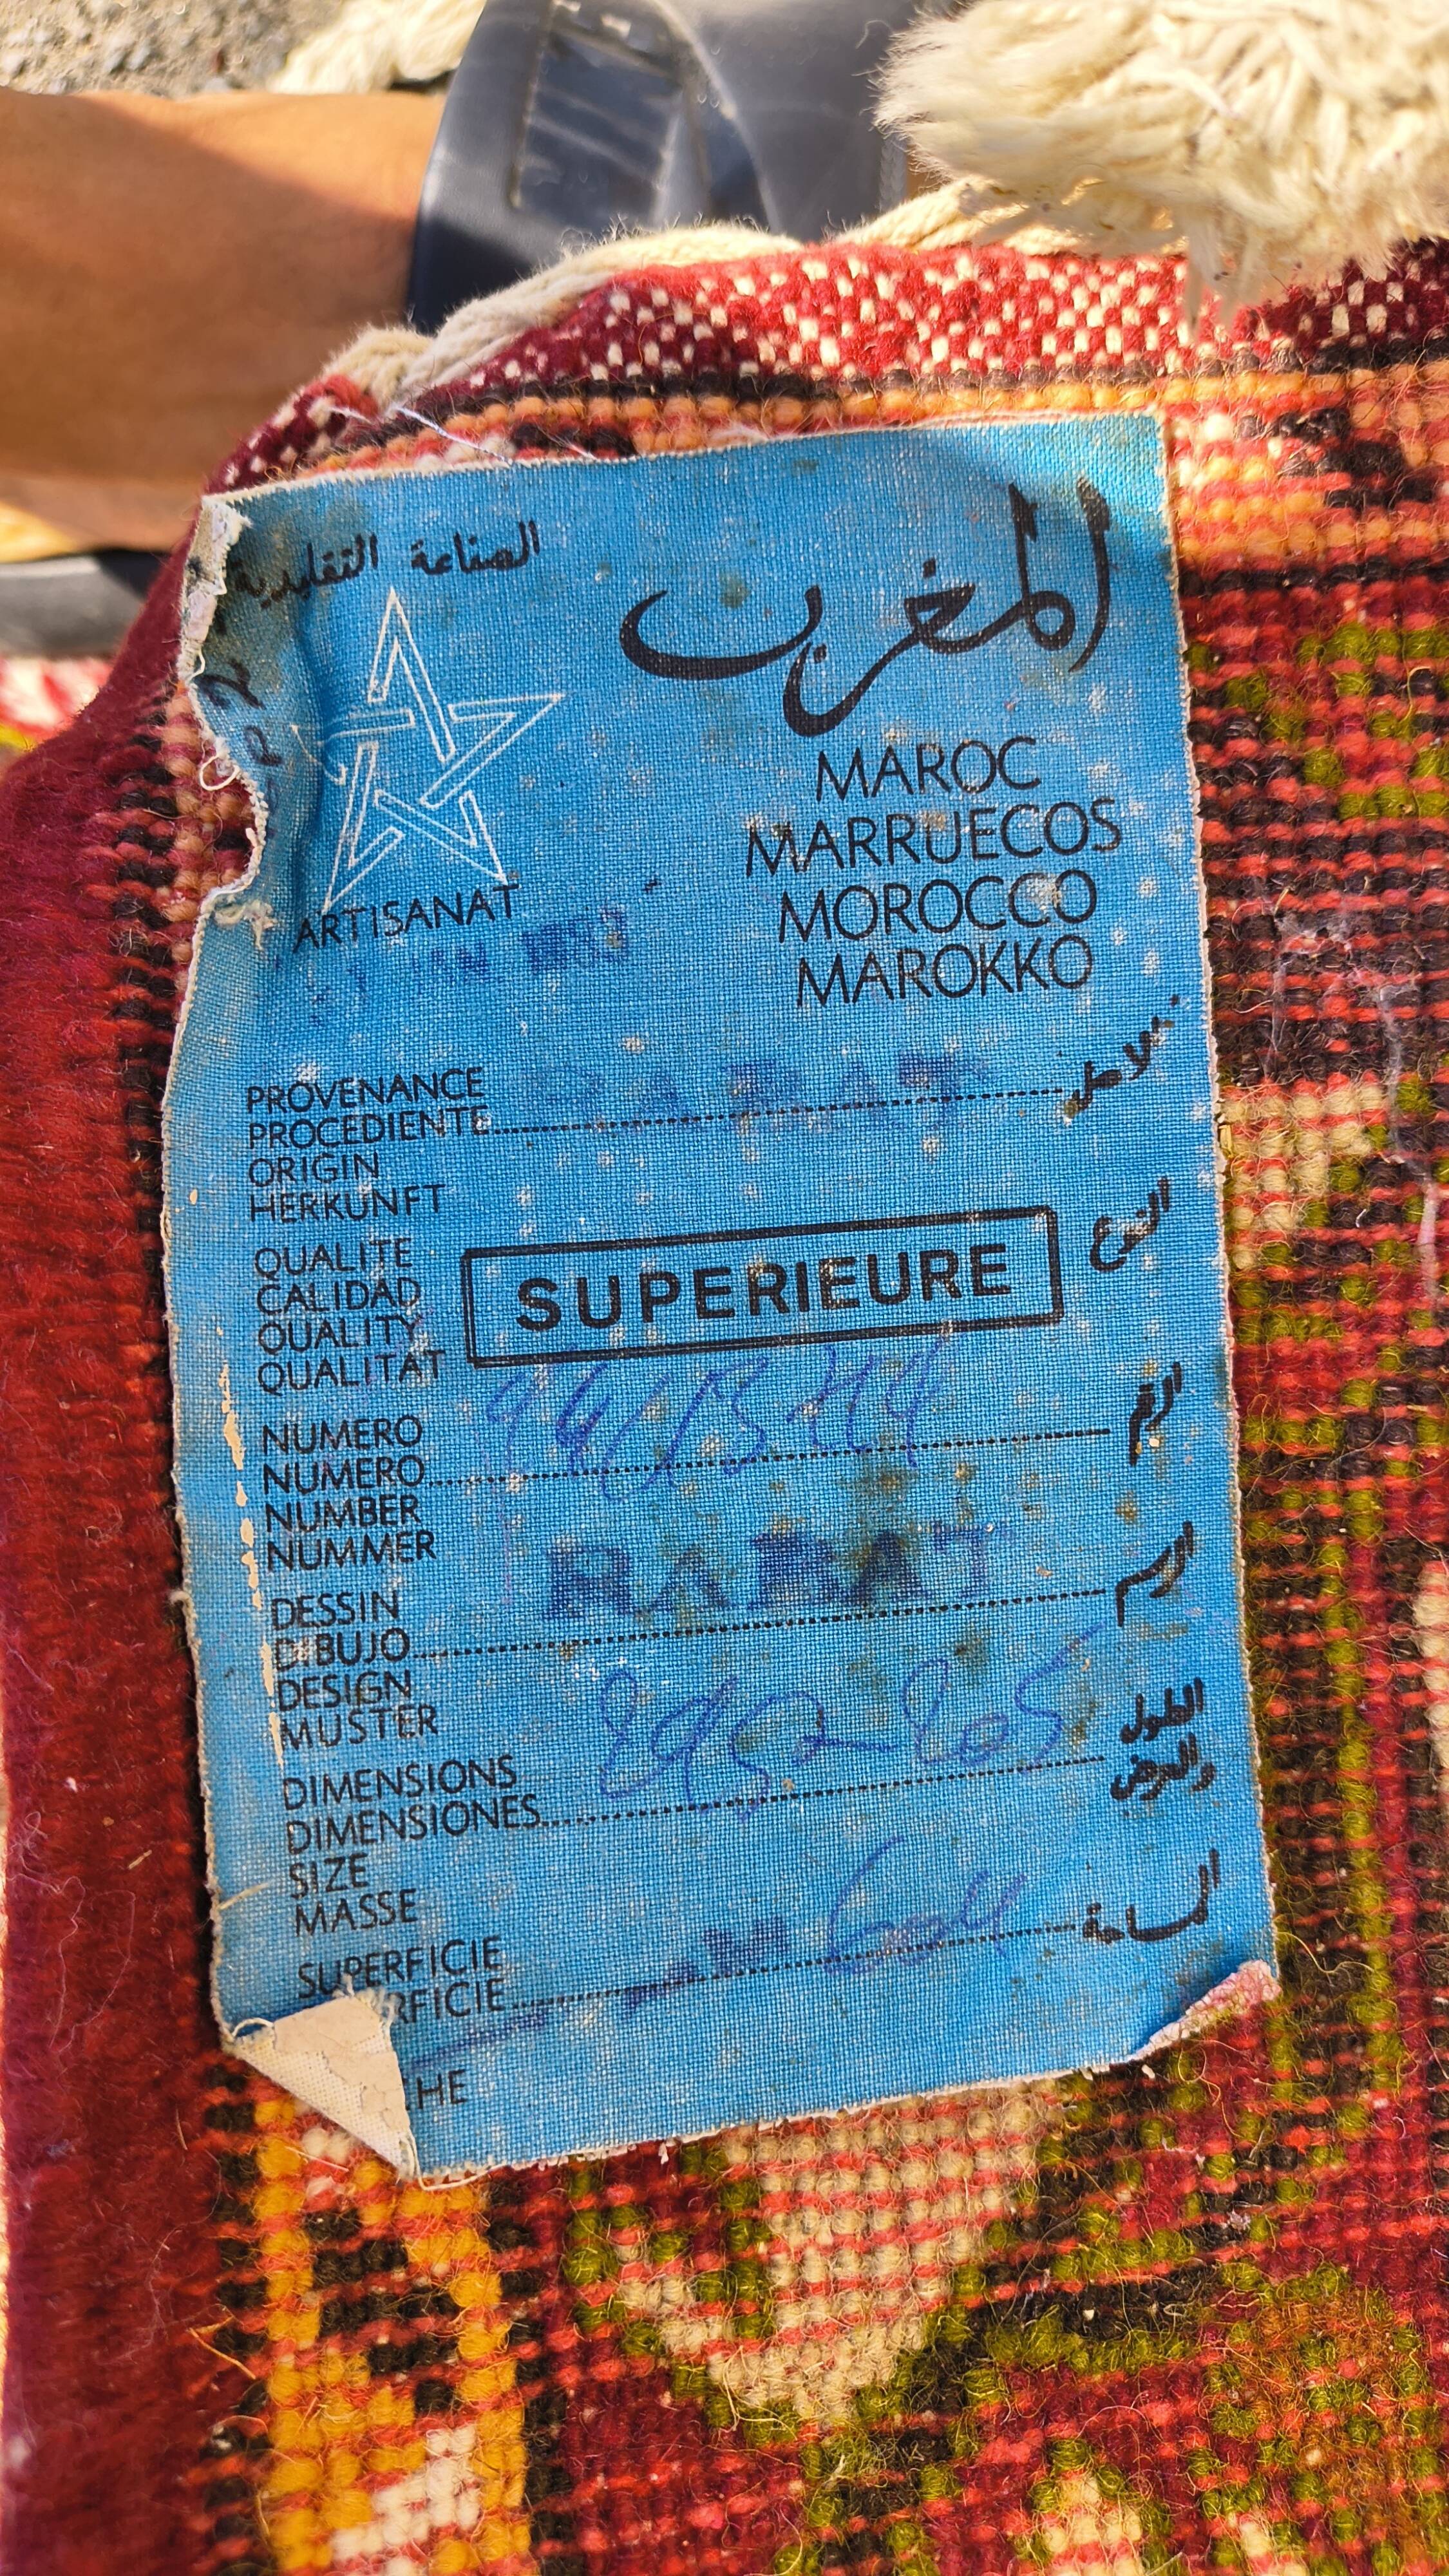 الصناعة التقليدية
المغرب
MAROC
MARRUECOS
MOROCCO
MAROKKO
ARTISANAT
PROVENANCE
PROCEDIENTE RABAT الاصل
ORIGIN
HERKUNFT
QUALITE
CALIDAD SUPERIEURE النوع
QUALITY
QUALITAT
NUMERO
NUMERO الرقم
NUMBER
NUMMER
DESSIN RABAT
DIBUJO الرسم
DESIGN
MUSTER
DIMENSIONS الطول
DIMENSIONES والعرض
SIZE
MASSE
SUPERFICIE
RFICIE 604 المساحة
HE